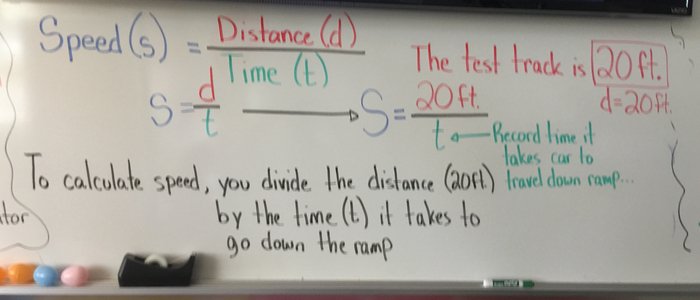 Speed (s) = Distance (d)
Time (t)
S = d
t
S = 20ft.
t
The test track is 20ft.
d=20ft.
Record time it
takes car to
travel down ramp...
To calculate speed, you divide the distance (20ft)
by the time (t) it takes to
go down the ramp
tor